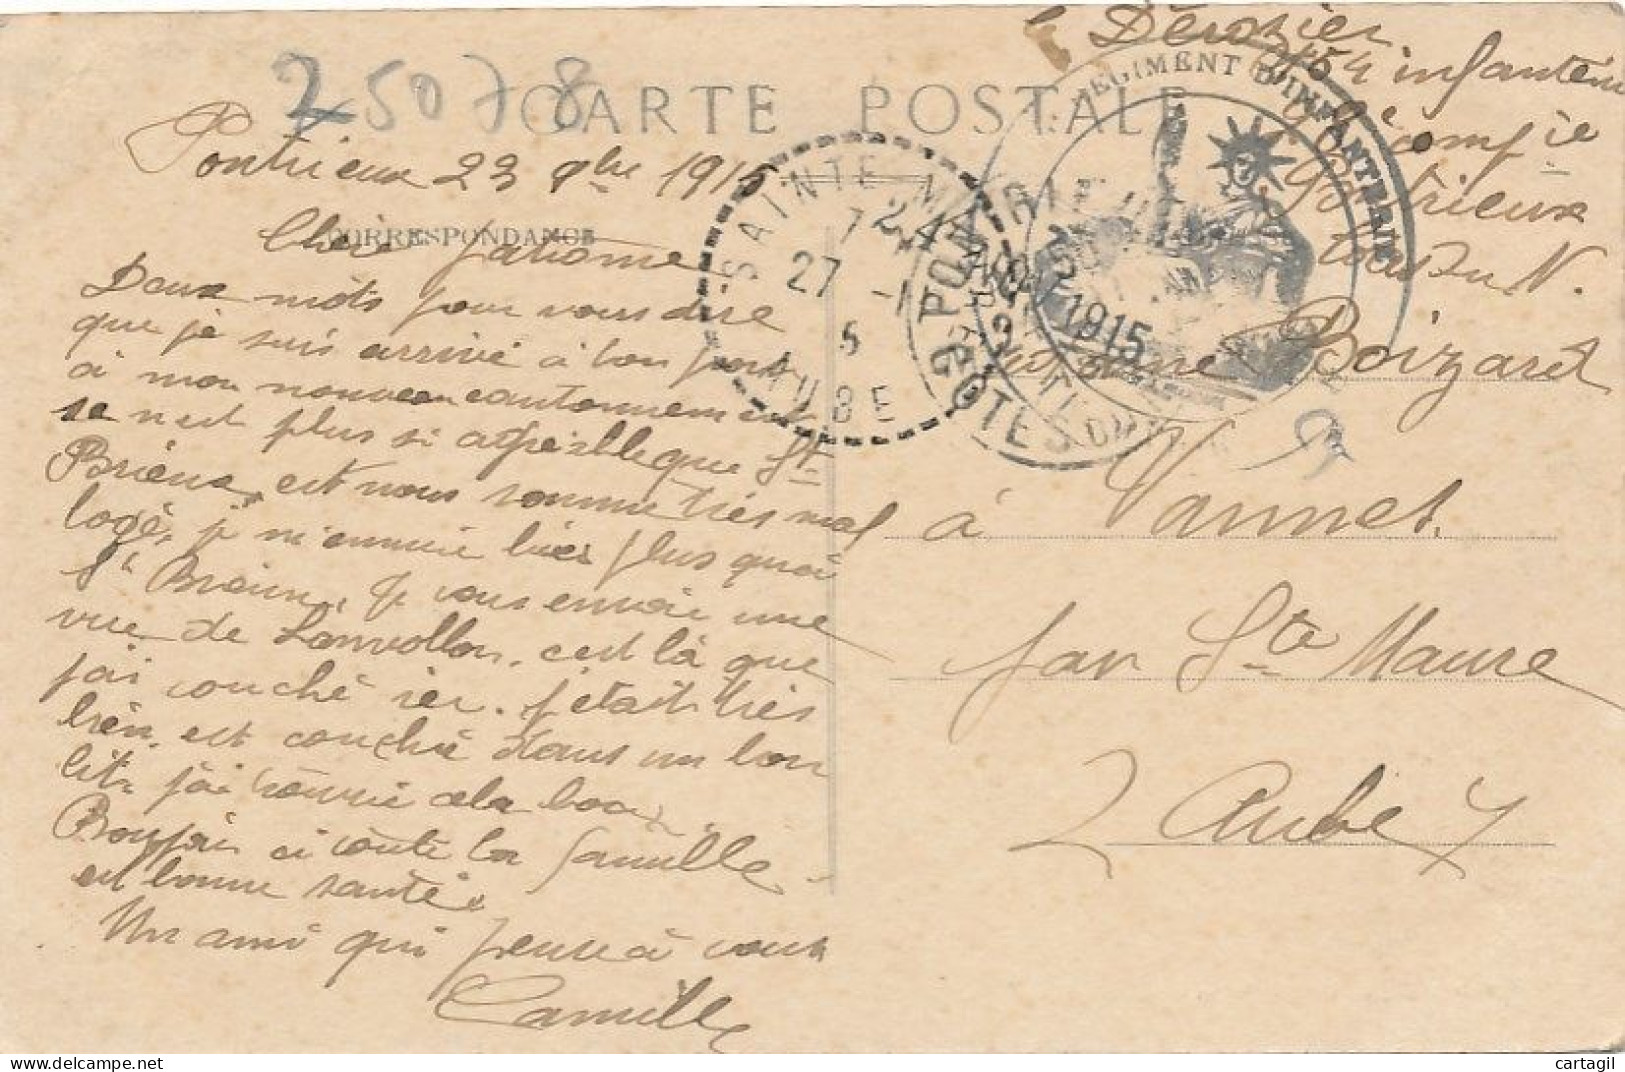 25078
CARTE POSTALE
Pontrieux 23 9bre 1915
CORRESPONDANCE
Deux mots pour vous dire
que je suis arrivé à bon port
à mon nouveau cantonnement
se n'est plus si agréable que St
Brieux, est nous somme très mal
logé, je m'ennuie bien plus qu'à
St Brieux, Je vous envoie une
vue de Lanvollon, c'est là que
j'ai couché ier. j'était très
bien, est couché dans un bon
lit, j'ai
Bonjour à toute la famille
est bonne santé
Un ami qui pense à vous
Camille
Derozier
infanterie
compie
Pontrieux
Côtes du N.
Boizard
à Vannes
par Ste Maure
Aube
SAINTE MAURE
27
AUBE
PONTRIEUX
1915
COTES DU
REGIMENT D'INFANTERIE
cartagil